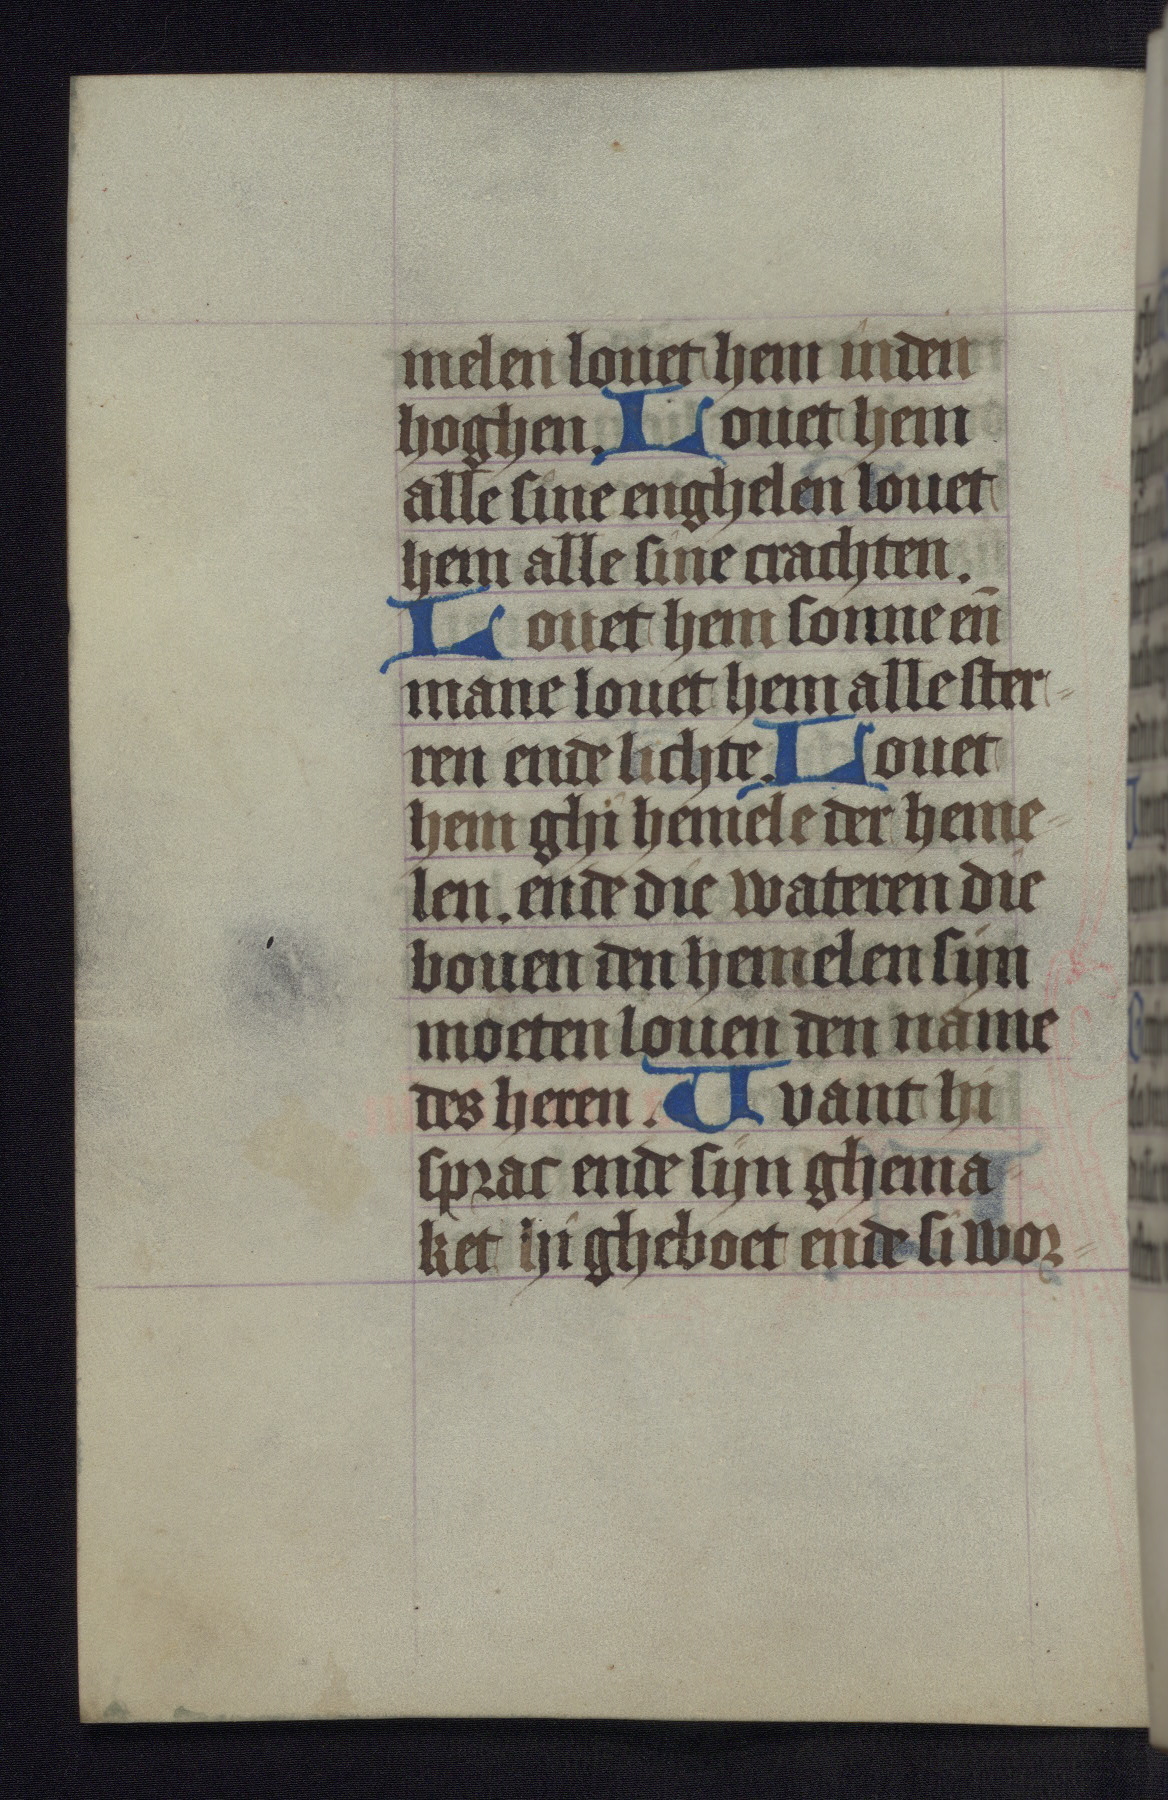 melen louet hem inden
hoghen. Louet hem
alle sine enghelen louet
hem alle sine crachten.
Louet hem sonne en̄
mane louet hem alle ster-
ren ende lichte. Louet
hem ghi hemele der heme-
len. ende die wateren die
bouen den hemelen sijn
moeten louen den name
des heren. Uvant hi
sprac ende sijn ghema-
ket hi gheboet ende si wor-